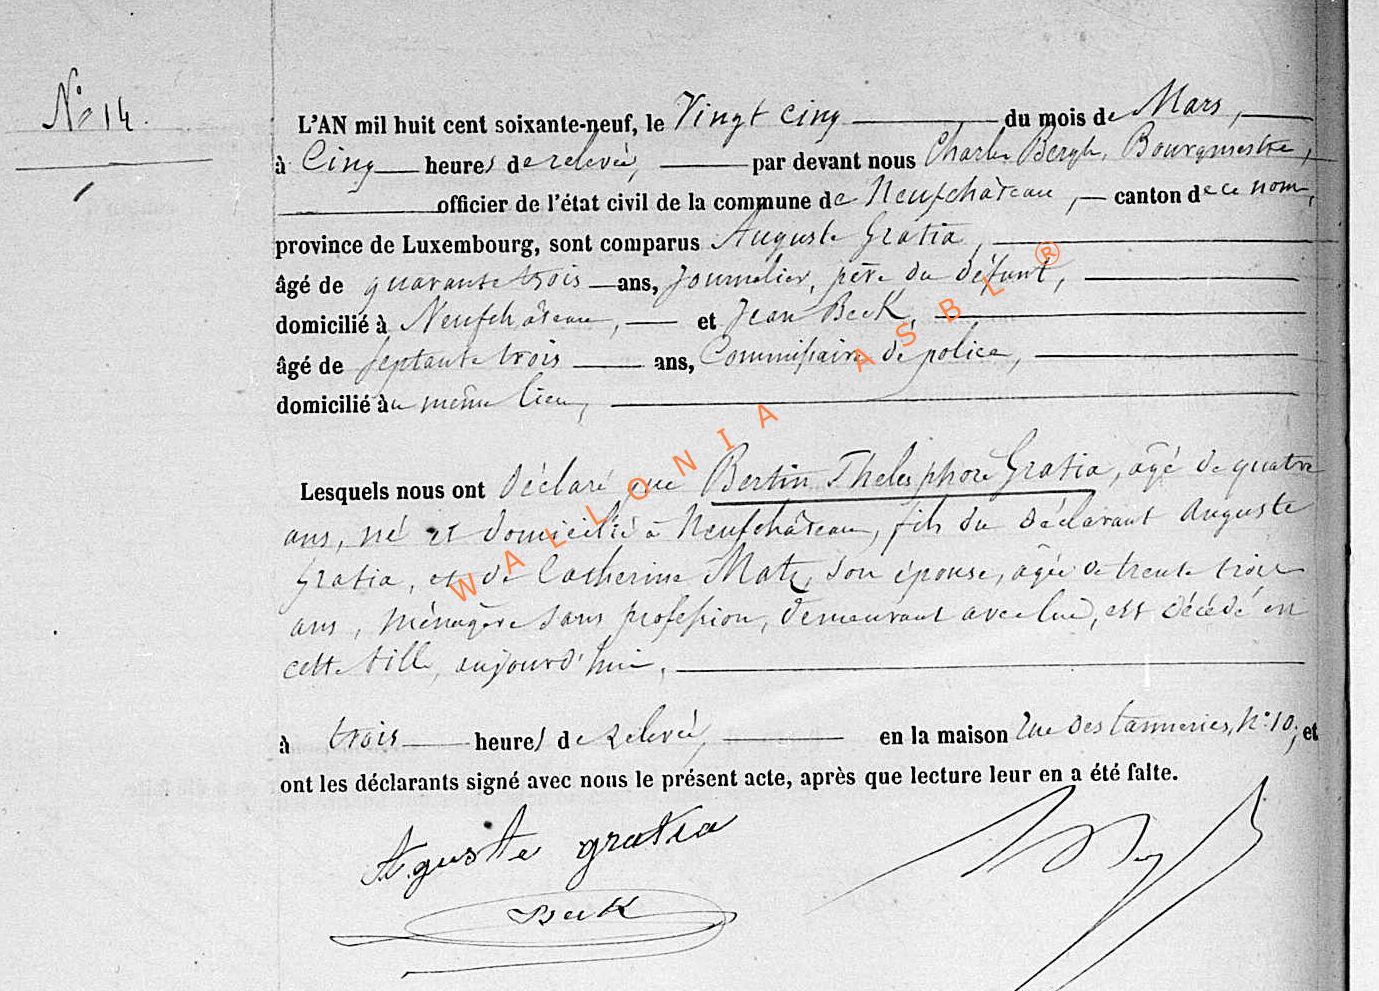 No 14.
L'AN mil huit cent soixante-neuf, le Vingt cinq du mois de Mars,
à Cinq heures de relevée, par devant nous Charles Bergh, Bourgmestre,
officier de l'état civil de la commune de Neufchâteau, canton de ce nom,
province de Luxembourg, sont comparus Auguste Gratia,
âgé de quarante trois ans, Journalier, père du défunt,
domicilié à Neufchâteau, et Jean Beck,
âgé de septante trois ans, Commissaire de police,
domicilié au même lieu,
Lesquels nous ont déclaré que Bertin Thelesphore Gratia, âgé de quatre
ans, né et domicilié à Neufchâteau, fils du déclarant Auguste
Gratia, et de Catherine Matz, son épouse, âgée de trente trois
ans, ménagère sans profession, demeurant avec lui, est décédé en
cette ville, aujourd'hui,
à trois heures de relevée, en la maison rue des tanneries, No 10; et
ont les déclarants signé avec nous le présent acte, après que lecture leur en a été faite.
Aguste gratia
Beck
WALLONIA ASBL ®